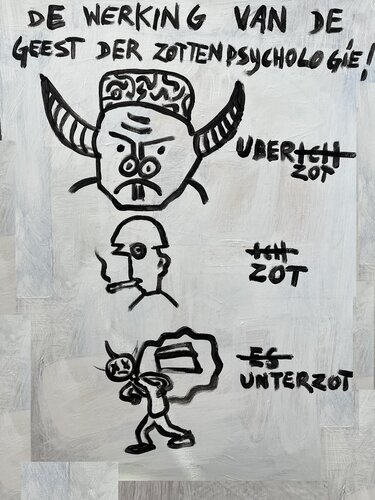 DE WERKING VAN DE
GEEST DER ZOTTENPSYCHOLOGIE!
UBERICH
ZOT
ICH
ZOT
ES
UNTERZOT